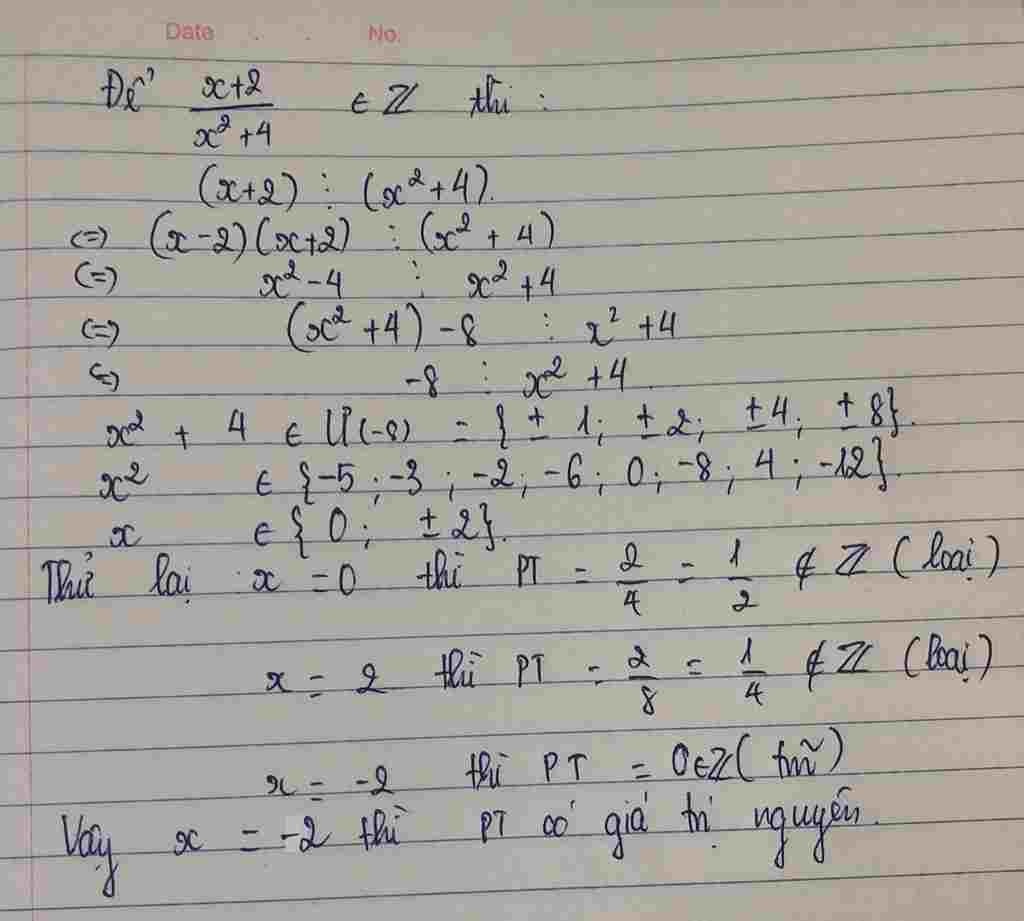 Date . . No.
Để x+2/x²+4 ∈ ℤ thì :
(x+2) ⋮ (x²+4).
(=) (x-2)(x+2) ⋮ (x² + 4)
(=) x²-4 ⋮ x²+4
(=) (x²+4) -8 ⋮ x²+4
(=) -8 ⋮ x²+4.
x² + 4 ∈ Ư(-8) = {± 1; ± 2; ±4; ± 8}.
x² ∈ {-5 ; -3 ; -2 ; -6 ; 0 ; -8 ; 4 ; -12}.
x ∈ { 0 ; ± 2}.
Thử lại : x = 0 thì PT = 2/4 = 1/2 ∉ ℤ (loại)
x = 2 thì PT = 2/8 = 1/4 ∉ ℤ (loại)
x = -2 thì PT = 0∈ℤ( tmỹ)
Vậy x = -2 thì PT có giá trị nguyên.